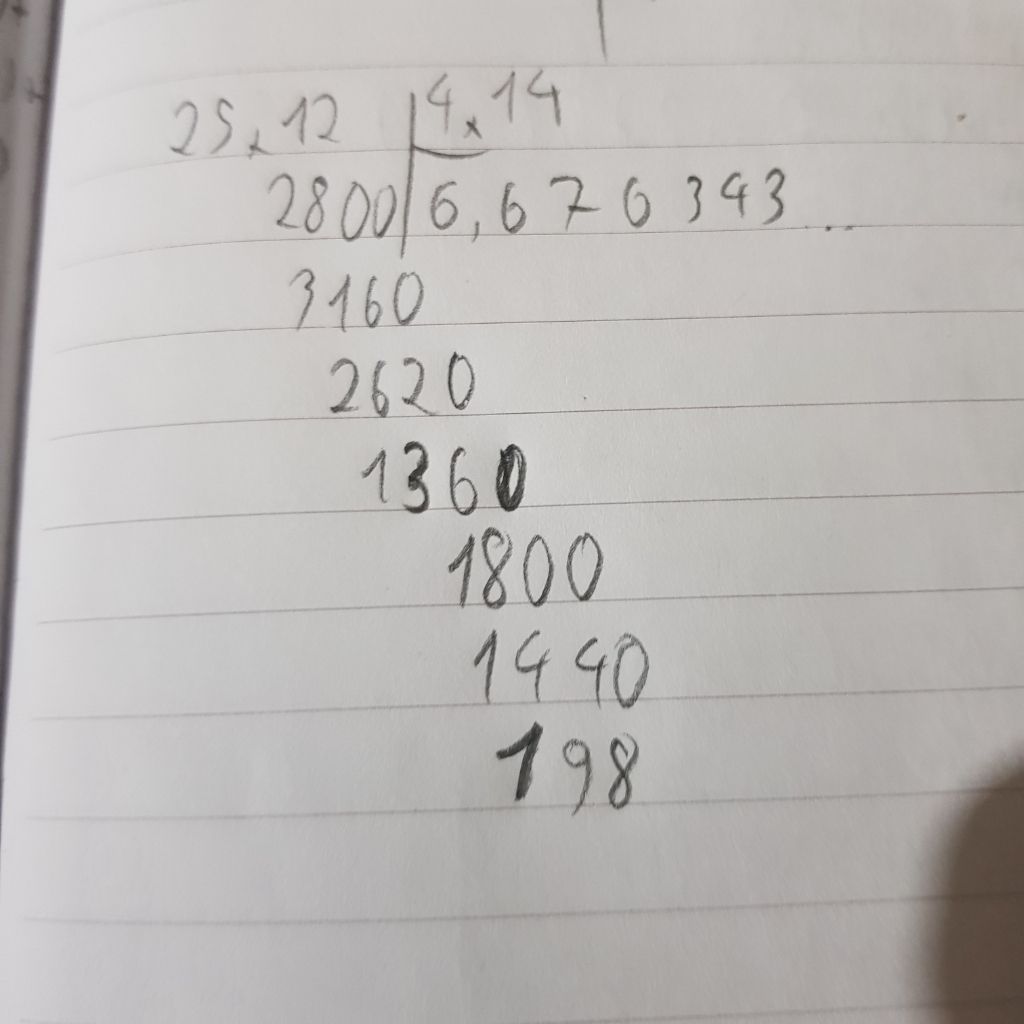 25,12 4,14
2800 6,676343...
3160
2620
1360
1800
1440
198